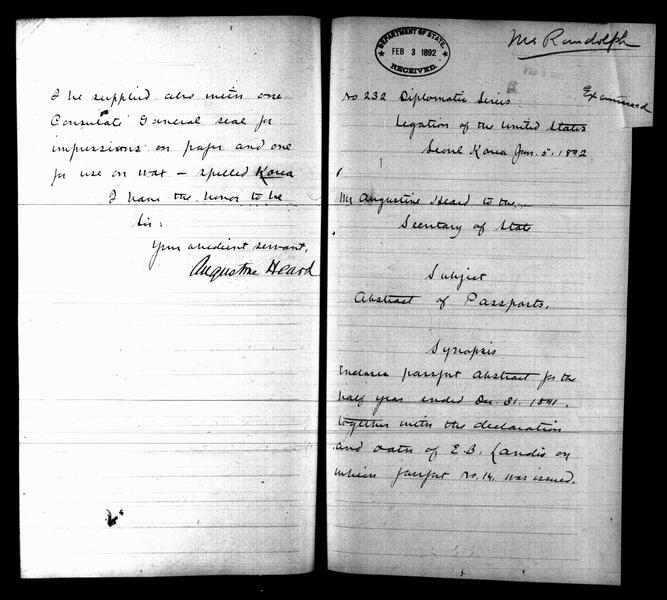 I be supplied also with one
Consulate General seal for
impressions on paper and one
for use on wax. – spelled Korea
I have the honor to be
Sir:
Your obedient servant,
Augustine Heard
DEPARTMENT OF STATE.
FEB 3 1892
RECEIVED.
Mr Randolph
Examined
No 232 Diplomatic Series
Legation of the United States
Seoul Korea Jan. 5. 1892
Mr Augustine Heard to the
Secretary of State
Subject
Abstract of Passports.
Synopsis
Encloses passport abstract for the
half year ended Dec. 31. 1891.
together with the declaration
and oath of E.B. Landis on
which passport no. 14. was issued.